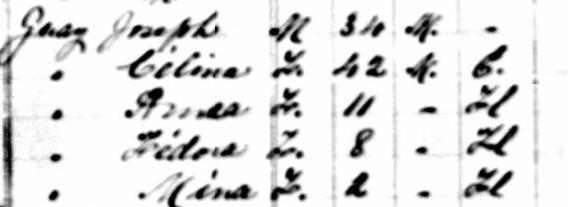 Guay Joseph M 34 M. -
" Célina F. 42 M. E.
" Annea F. 11 - Fl
" Fédora F. 8 - Fl
" Mina F. 2 - Fl